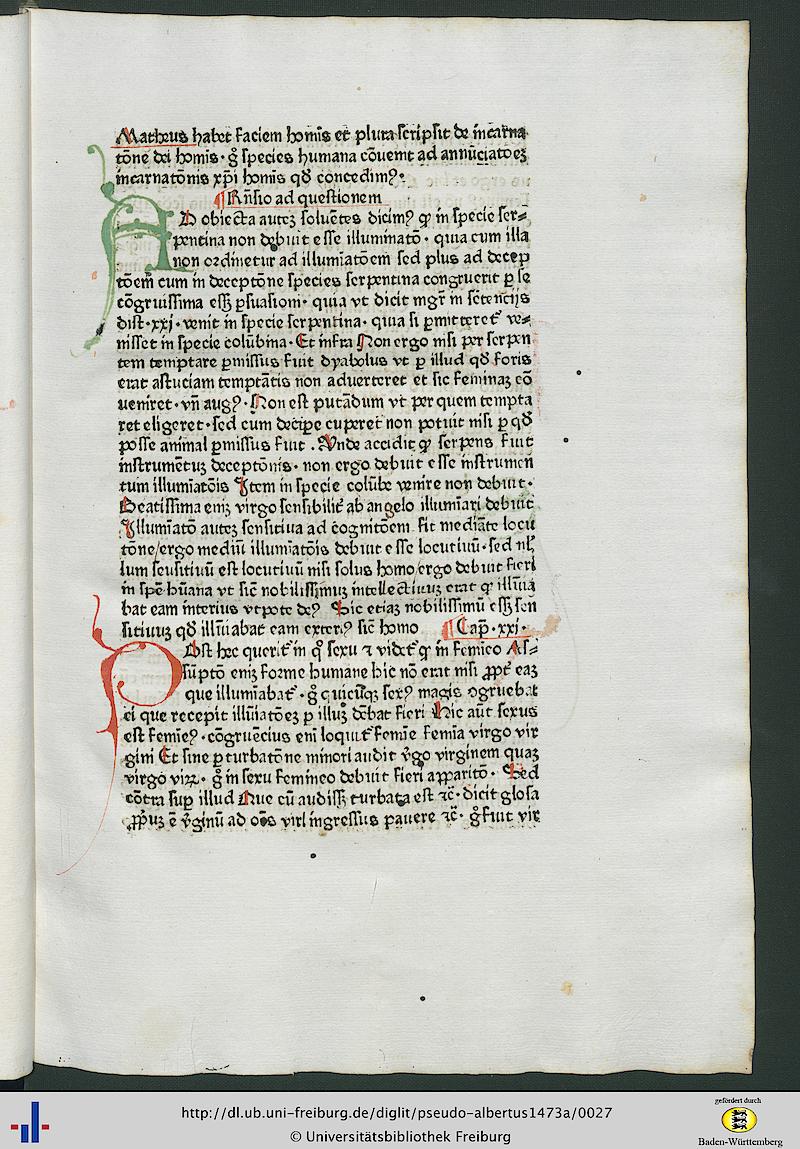 Matheus habet faciem homīs et plura scripsit de incarna
tōne dei homis· g̊ species humana cōuenit ad annūciatōeꝫ
incarnatōnis xp̄i homis qd̄ concedimꝰ·
¶Rn̄sio ad questionem
AD obiecta auteꝫ soluētes dicimꝰ ꝙ in specie ser⸗
pentina non debuit esse illuminatō· quia cum illa
non ordinetur ad illumīatōem sed plus ad decep
tōem̄ cum in deceptōne species serpentina congruerit ꝑ se
cōgruissima ess̄ꝫ ꝑsuasioni· quia vt dicit mgr̄ in sētencijs
dist·xxi· venit in specie serpentina· quia si ꝑmitteret᷑ ve⸗
nisset in specie colūbina· Et infra Non ergo nisi per serpen
tem temptare ꝑmissus fuit dyabolus vt ꝑ illud qd̄ foris
erat astuciam temptātis non aduerteret et sic feminaꝫ cō
ueniret· vn̄ augꝰ· Non est putādum vt per quem tempta
ret eligeret· sed cum decipe cuperet non potuit nisi ꝑ qd̄
posse animal ꝑmissus fuit . Vnde accidit ꝙ serpens fuit
instrumētuꝫ deceptōnis· non ergo debuit esse instrumen
tum illumīatōis Item in specie colūbe venire non debuit·
Beatissima eniꝫ virgo sensibilit᷑ ab angelo illumīari debuit
Illumīatō auteꝫ sensitiua ad cognitōem fit mediāte locu
tōne/ergo mediū illumīatōis debuit esse locutiuū· sed nl̄
lum sensitiuū est locutiuū nisi solus homo/ergo debuit fieri
in spē hūana vt sic̄ nobilissimuꝫ intellectiuuꝫ erat ꝙ illūīa
bat eam interius vtpote deꝰ Sic etiaꝫ nobilissimū ess̄ꝫ sen
sitiuuꝫ qd̄ illūīabat eam exteriꝰ sic̄ homo ¶Cap̄·xxi·
POst hec querit᷑ in q̊ sexu ⁊ videt᷑ ꝙ in femīeo As⸗
sūptō eniꝫ forme humane hic nō erat nisi ꝓpt᷑ eaꝫ
que illumīabat᷑· g̊ quicūqꝫ sexꝰ magis ꝯgruebat
ei que recepit illūīatōeꝫ ꝑ illuꝫ dēbat fieri Hic aūt sexus
est femīeꝰ· cōgruencius enī loquit᷑ femīe femīa virgo vir
gini Et sine ꝑturbatōne minori audit ꝟgo virginem quaꝫ
virgo viꝝ· g̊ in sexu femineo debuit fieri apparitō· Sed
cōtra suꝑ illud Que cū audiss̄ꝫ turbata est ⁊c̄· dicit glosa
ꝓp̄uꝫ ē ꝟginū ad oēs viri ingressus pauere ⁊c̄· g̊ fuit vir
http://dl.ub.uni-freiburg.de/diglit/pseudo-albertus1473a/0027
© Universitätsbibliothek Freiburg
gefördert durch
Baden-Württemberg